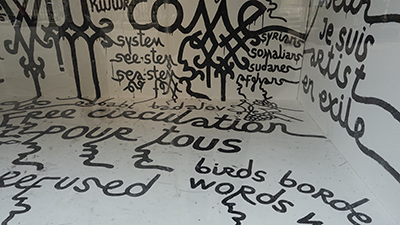 come
system
see-stem
sea-stem
syrians
somalians
sudanes
afghans
Je suis
artist
en exile
babi badalov
Free circulation
pour tous
refused
birds borde
words